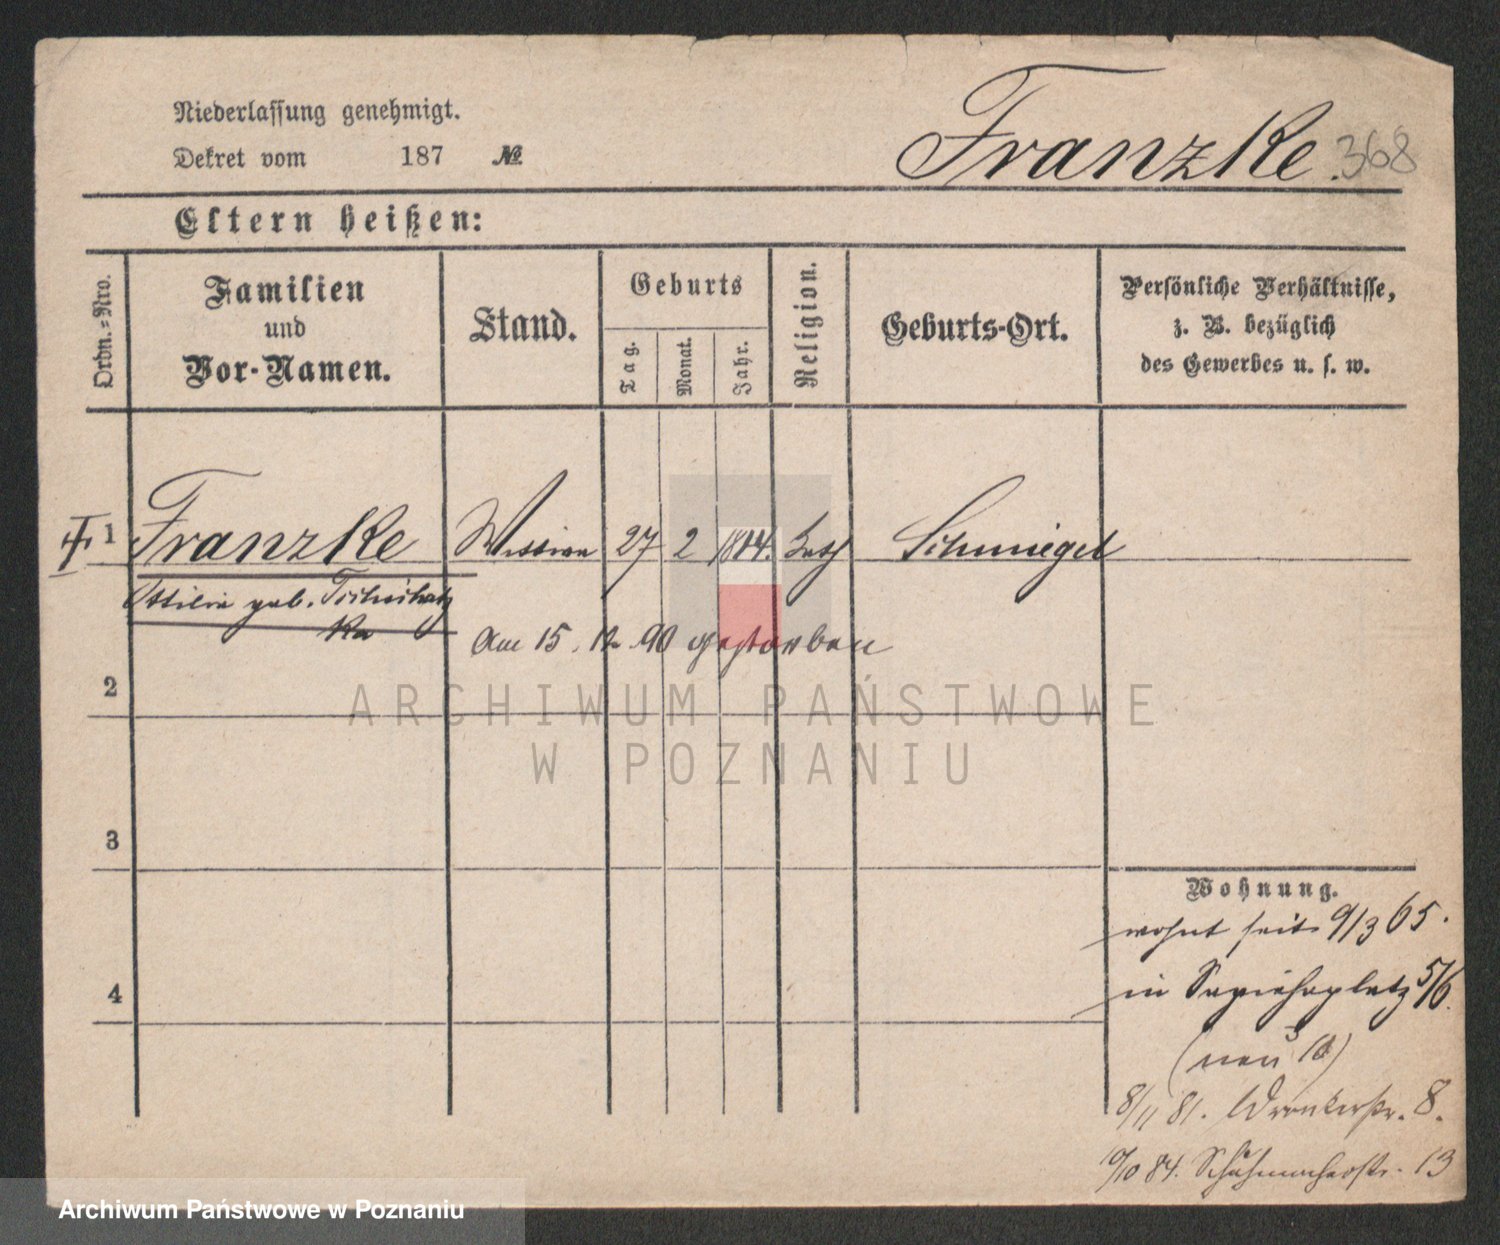 Niederlassung genehmigt.
Dekret vom 187 №
Franzke. 368
Eltern heißen:
Ordn.=Nro.
Familien
und
Vor-Namen.
Stand.
Geburts
Tag.
Monat.
Jahr.
Religion.
Geburts-Ort.
Persönliche Verhältnisse,
z. B. bezüglich
des Gewerbes u. s. w.
1 Franzke 27 2 1814. Schmiegel
geb.
Am 15. 12. 90 gestorben
2
ARCHIWUM PAŃSTWOWE
W POZNANIU
3
4
Wohnung.
wohnt seit 9/3 65.
in Sapiehaplatz 5/6.
(neu
8/11 81. Wronkerstr. 8.
84. Schuhmacherstr. 13
Archiwum Państwowe w Poznaniu